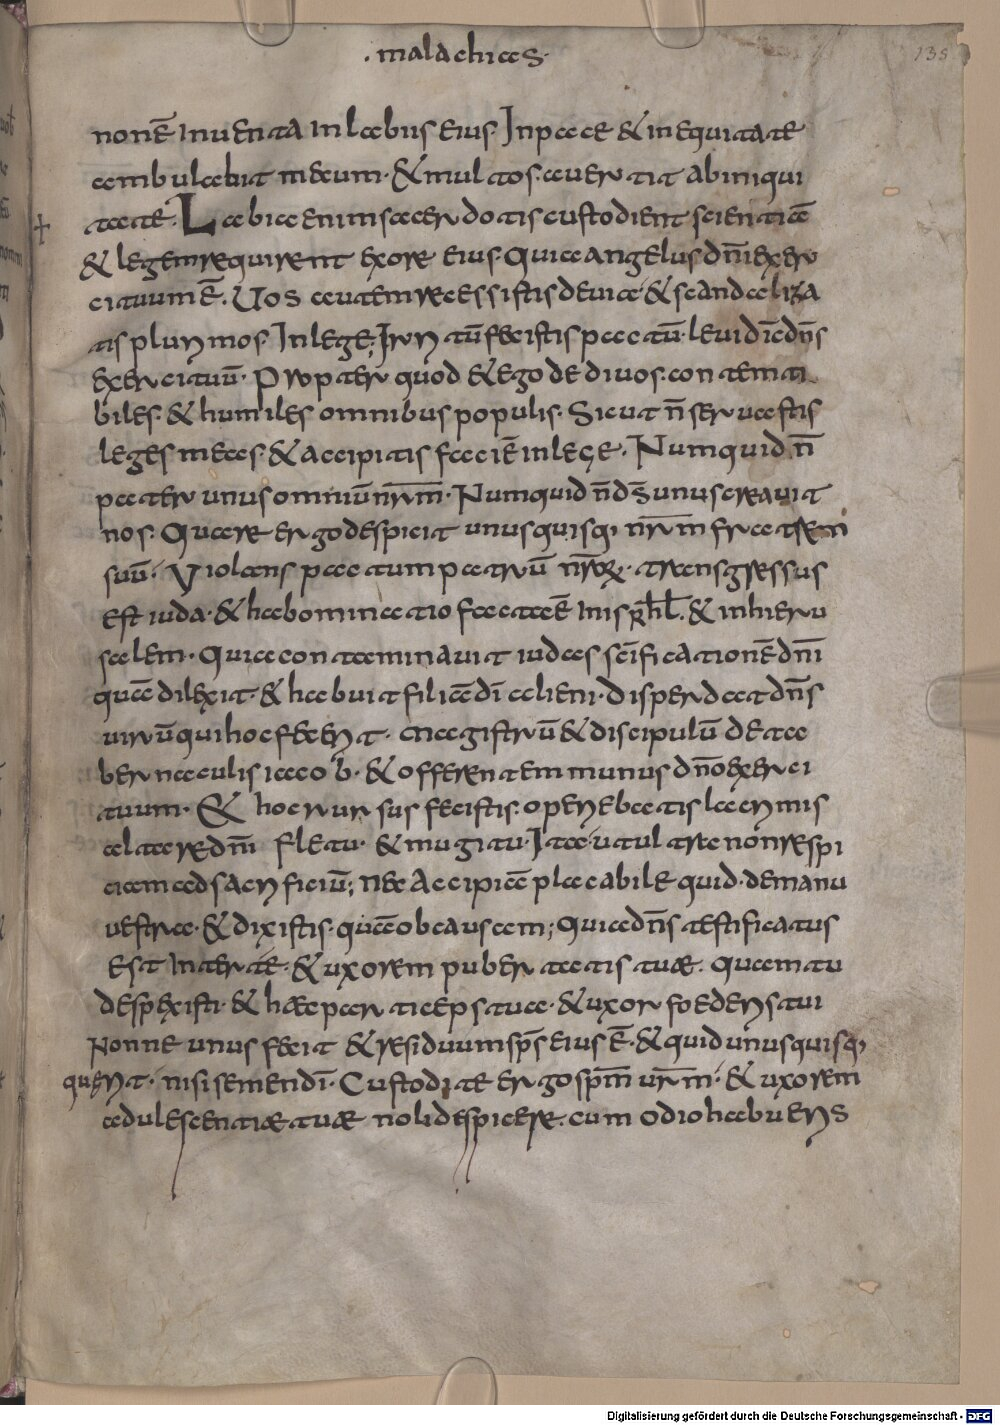 · malachias ·
135
non ē inuenta in labiis eius. In pace & in equitate
ambulabit mecum. & multos auertit ab iniqui
tate. Labia enim sacerdotis custodient scientiā
& legem requirent ex ore eius. Quia angelus dn̄i exer
cituum ē. Uos autem recessistis de uia & scandaliza
tis plurimos In lege; Irritū fecistis pactū leui dīc dn̄s
exercituū. Propter quod & ego de di uos. contemti
biles. & humiles omnibus populis. Sicut n̄ seruastis
leges meas. & accipitis faciē in lege. Numquid n̄
pater unus omniū nr̄m. Numquid n̄ ds̄ unus creauit
nos. Quare ergo despicit unusquisq; nr̄m fratrem
suū. Violans pactum patrū nr̄oꝝ. transgressus
est iuda. & habominatio facta ē in isrl̄. & in hieru
salem. Quia contaminauit iudas scīficationē dn̄i
quā dilexit. & habuit filiā dī alieni. Disperdat dn̄s
uirū qui hoc fecerit. magistrū & discipulū de ta
bernaculis iacob. & offerentem munus dn̄o exerci
tuum. & hoc rursus fecistis. operiebatis lacrimis
altare dn̄i fletu. & mugitu. Ita ut ultra non respi
ciam ad sacrificiū; nec accipiā placabile quid. de manu
uestra. & dixistis. quā ob causam; Quia dn̄s testificatus
est inter te. & uxorem pubertatis tuæ. Quam tu
despexisti. & hæc particeps tua. & uxor foederis tui
Nonne unus fecit & residuum sp̄s eius ē. & quid unusquisq;
querit. nisi semen dī. Custodite ergo spm̄ ur̄m. & uxorem
adulescentiæ tuæ noli despicere. cum odio habueris
Digitalisierung gefördert durch die Deutsche Forschungsgemeinschaft - DFG